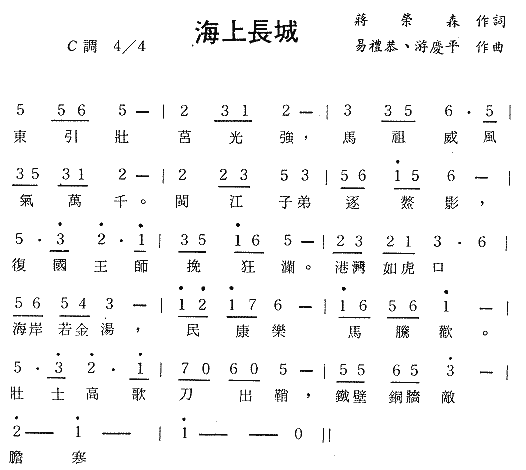 海上長城
蔣榮森 作詞
C調 4/4
易禮恭、游慶平 作曲
5 5 6 5 — | 2 3 1 2 — | 3 3 5 6 · 5 |
東引壯 莒光強，馬祖威風
3 5 3 1 2 — | 2 2 3 5 3 | 5 6 i 5 6 — |
氣萬千。閩江子弟逐鰲影，
5 · 3̇ 2̇ · i | 3 5 i 6 5 — | 2 3 2 1 3 · 6 |
復國王師挽狂瀾。港灣如虎口
5 6 5 4 3 — | i 2̇ i 7 6 — | i 6 5 6 i — |
海岸若金湯，民康樂 馬騰歡。
5 · 3̇ 2̇ · i | 7 0 6 0 5 — | 5 5 6 5 3̇ — |
壯士高歌刀出鞘，鐵壁銅牆敵
2̇ — i — | i — — 0 ||
膽寒